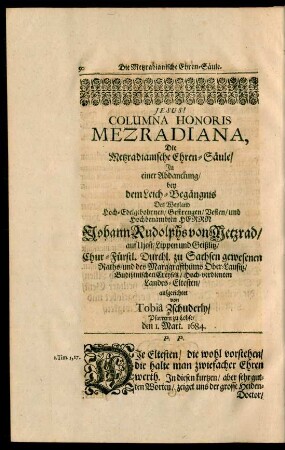 50 Die Metzradianische Ehren-Säule.
JESUS!
COLUMNA HONORIS
MEZRADIANA,
Die
Metzradianische Ehren-Säule/
In
einer Abdanckung/
bey
dem Leich-Begängnis
Des Weyland
Hoch-Edelgebohrnen/ Gestrengen/ Vesten/ und
Hochbenambten HERRN
Johann Rudolphs von Metzrad/
auf Uhyst/ Luppen und
Chur-Fürstl. Durchl. zu Sachsen gewesenen
Raths/ und des Marggraffthums Ober-Lausitz/
Budißinischen Creyses/ Hoch-verdienten
Landes-Eltesten/
aufgerichtet
von
Tobia Zschuderly/
Pfarrern zu
den 1. Mart. 1684.
P. P.
1. Tim. 5, 17. DIe Eltesten/ die wohl vorstehen/
die halte man zwiefacher Ehren
werth. In diesen kurtzen/ aber sehr gut-
ten Worten/ zeiget uns der grosse Heiden-
Doctor/